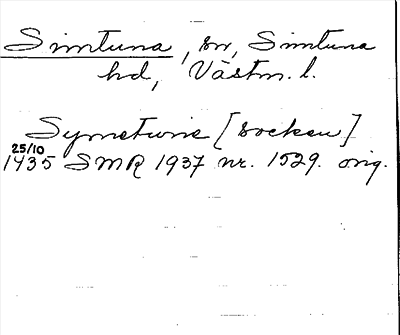 Simtuna, sn, Simtuna
hd, Västm. l.
Symetune [socken]
25/10
1435 SMR 1937 nr. 1529. orig.